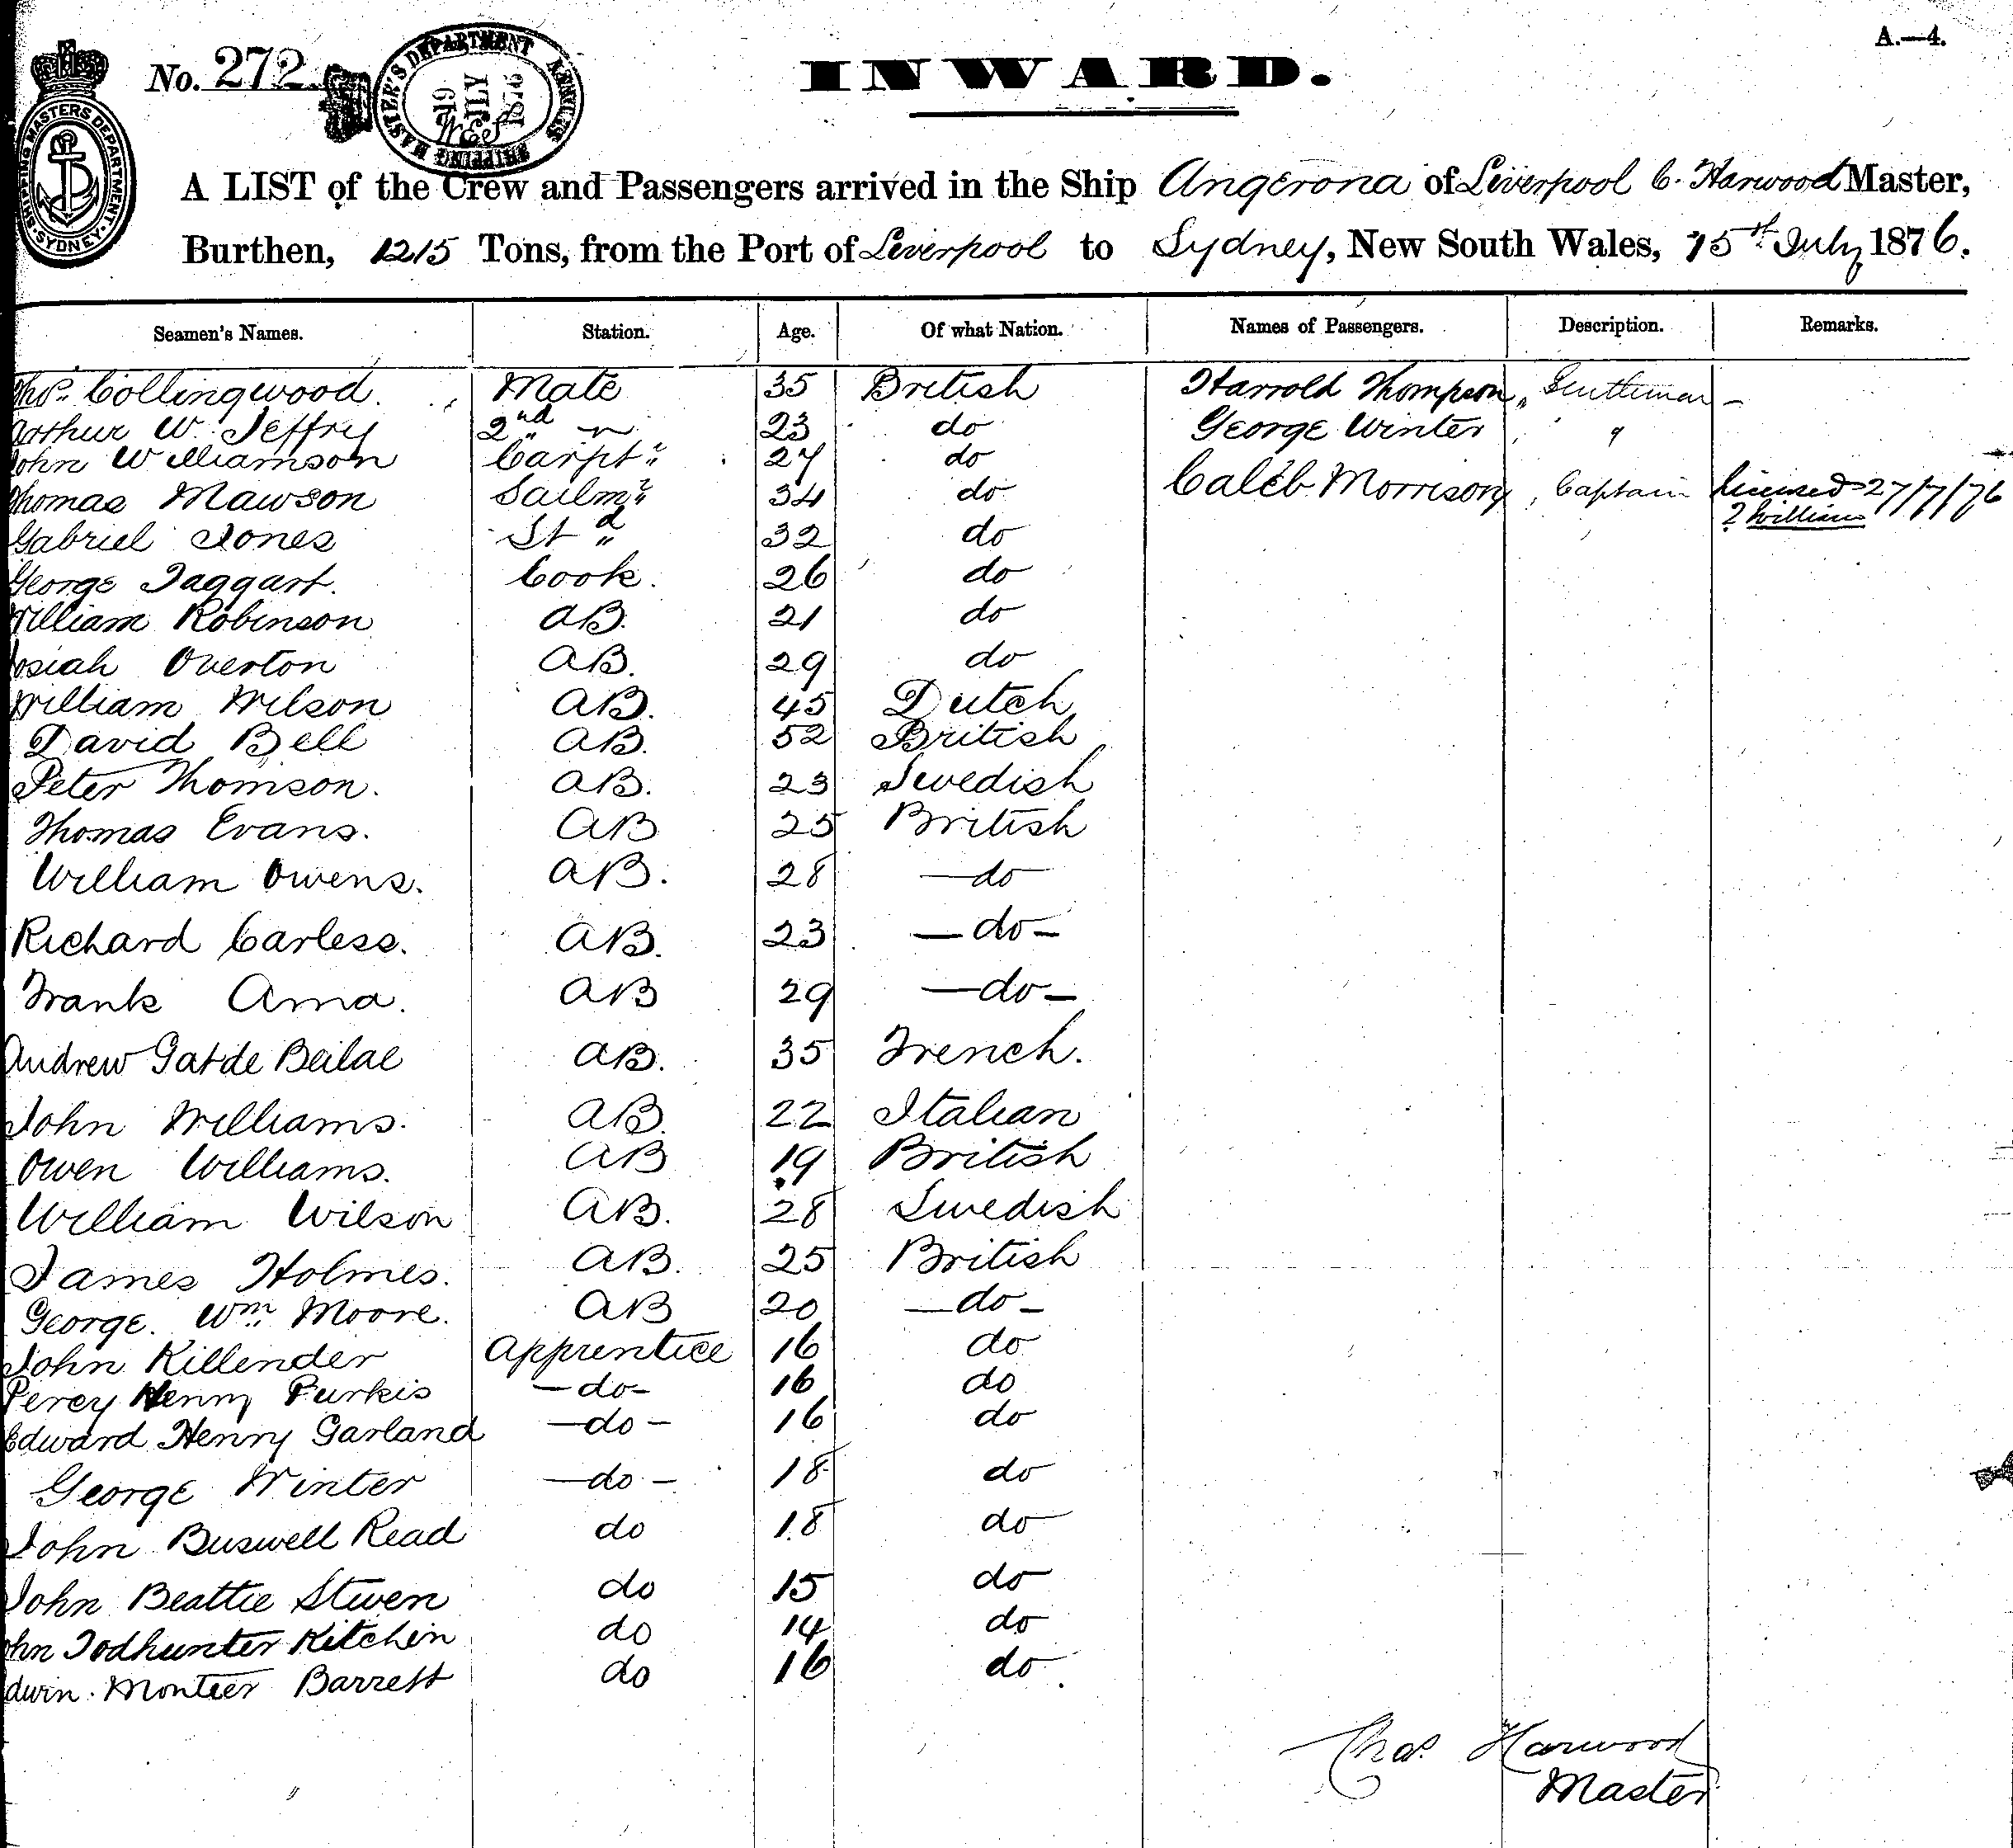 A.—4.
No. 272
SHIPPING MASTERS DEPARTMENT SYDNEY
SHIPPING MASTER'S DEPARTMENT SYDNEY
JULY
1876
INWARD.
A LIST of the Crew and Passengers arrived in the Ship Angerona of Liverpool C. Harwood Master,
Burthen, 1215 Tons, from the Port of Liverpool to Sydney, New South Wales, 15th July 1876.
Seamen's Names. Station. Age. Of what Nation. Names of Passengers. Description. Remarks.
Thos. Collingwood. Mate 35 British Harrold Thompson, Gentleman
Arthur W. Jeffry 2nd " 23 do George Winter "
John Williamson Carptr 27 do
Thomas Mawson Sailmr 34 do Caleb Morrison, Captain 27/7/76
Gabriel Jones Std 32 do
George Taggart. Cook. 26 do
William Robinson AB. 21 do
Josiah Overton AB. 29 do
William Wilson AB. 45 Dutch
David Bell AB. 52 British
Peter Thomson. AB. 23 Swedish
Thomas Evans. AB 25 British
William Owens. AB. 28 —do
Richard Carless. AB. 23 —do—
Frank Ama. AB 29 —do—
Andrew Gatde Beilae AB. 35 French.
John Williams. AB. 22 Italian
Owen Williams. AB 19 British
William Wilson AB. 28 Swedish
James Holmes. AB. 25 British
George. Wm. Moore. AB 20 —do—
John Killender Apprentice 16 do
Percy Henry Purkis —do— 16 do
Edward Henry Garland —do— 16 do
George Winter —do— 18 do
John Buswell Read do 18 do
John Beattie Stiven do 15 do
John Todhunter Kitchin do 14 do
Edwin. Monteer Barrett do 16 do.
Chas. Harwood
Master